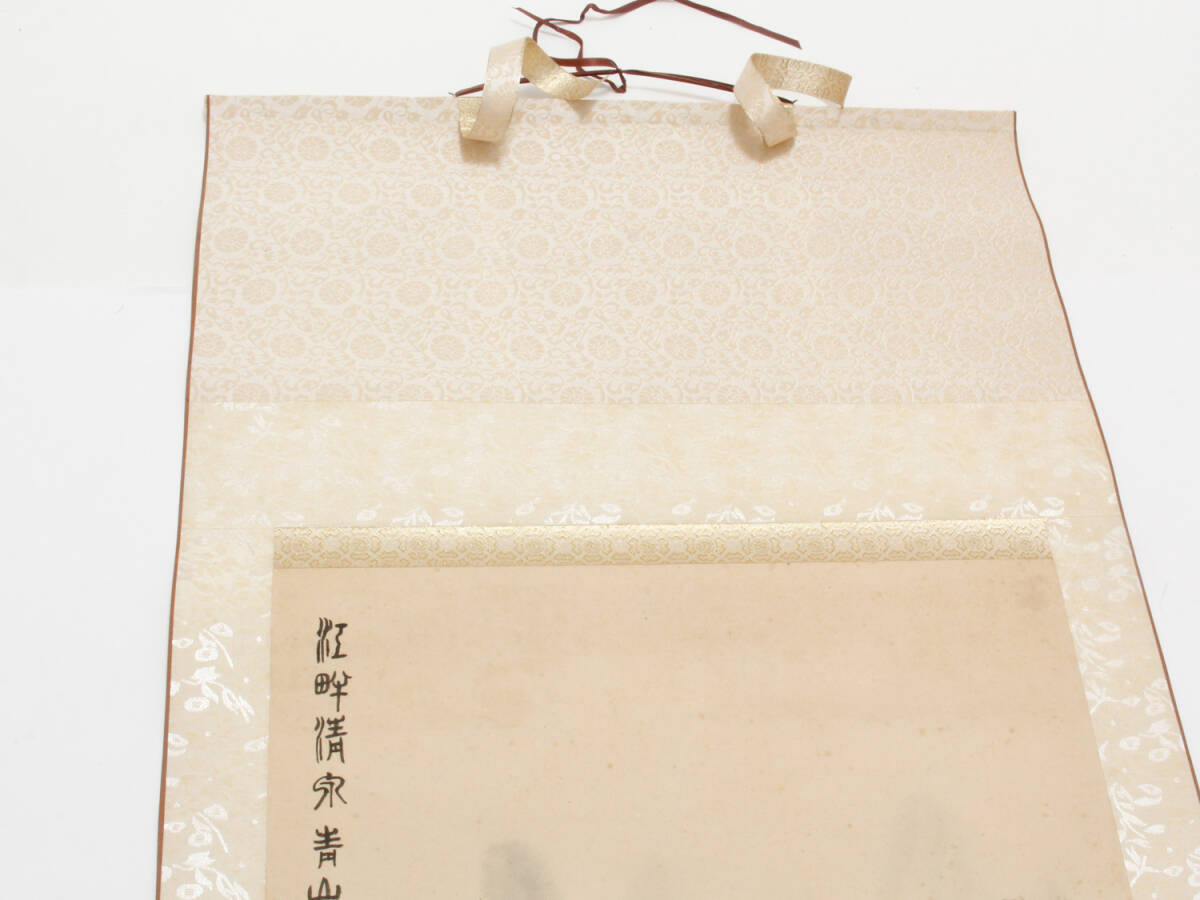 江畔清泉青山